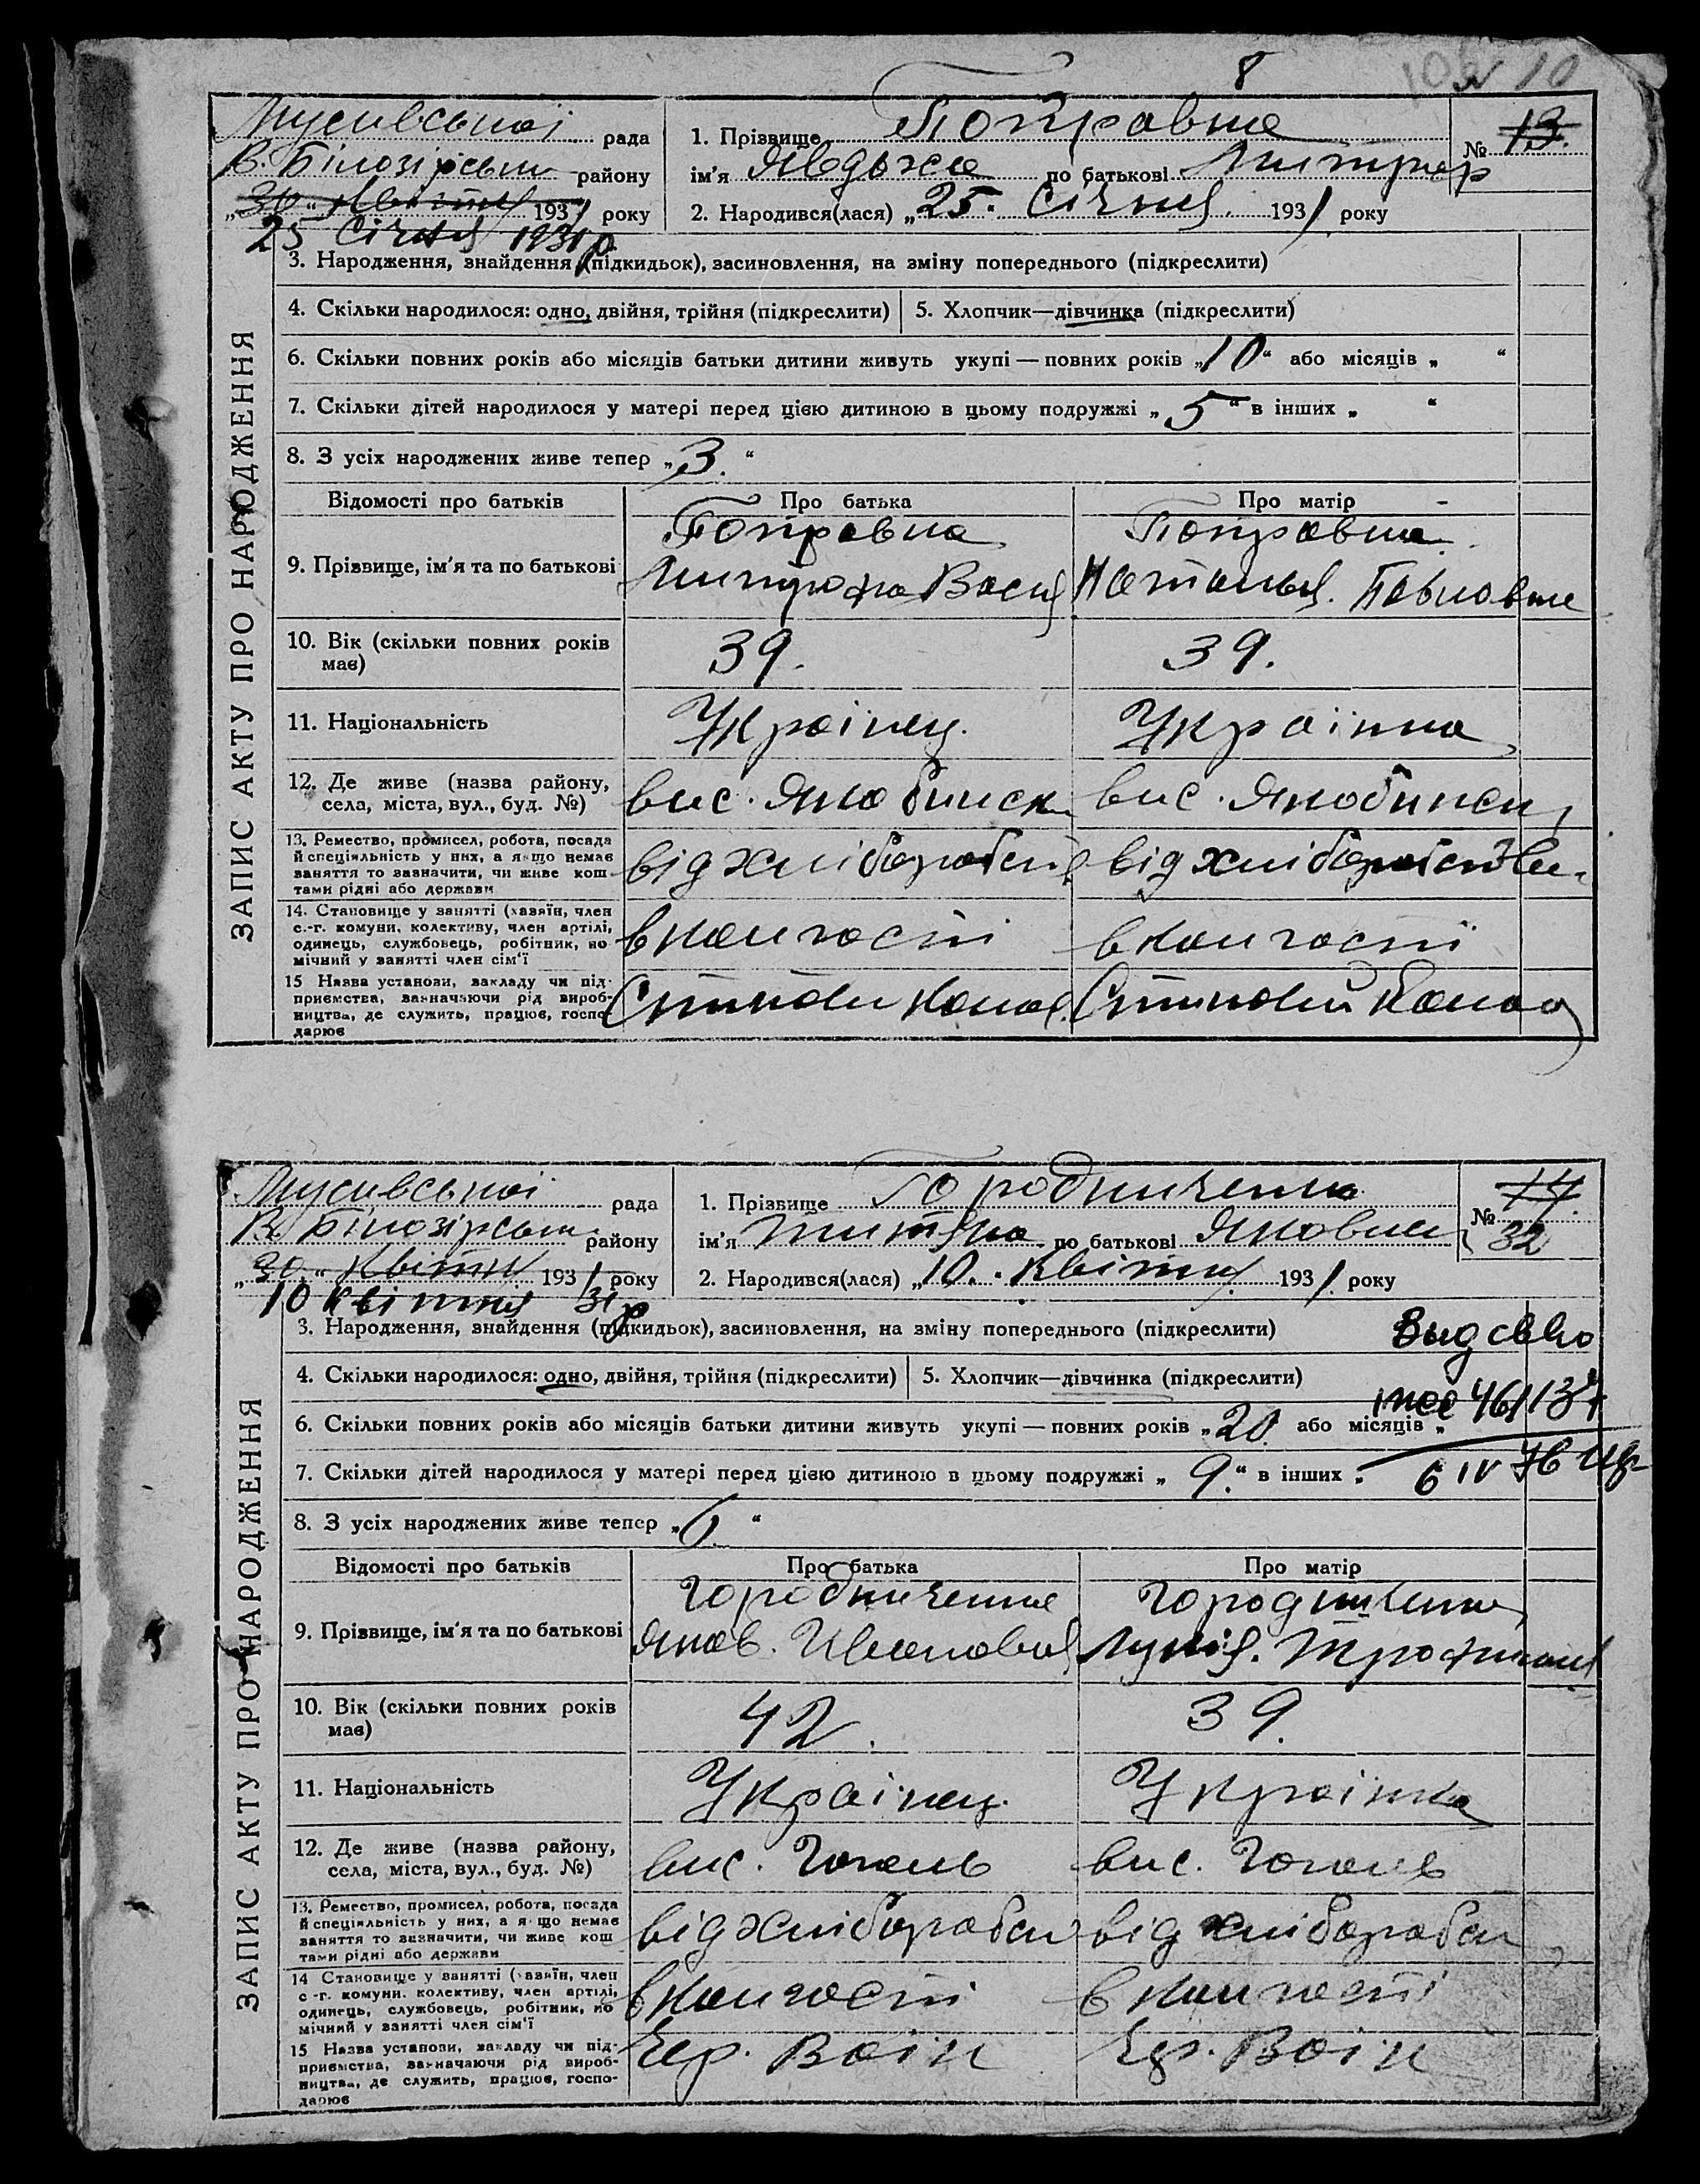 8
10
Мусивської рада
В. Білозірськи району
„30“ Квітня 1931 року
25 Січня 1931 р
1. Прізвище Поправка
ім'я Явдоха по батькові
№ 13.
2. Народився(лася) „25“ Січня 1931 року
ЗАПИС АКТУ ПРО НАРОДЖЕННЯ
3. Народження, знайдення (підкидьок), засиновлення, на зміну попереднього (підкреслити)
4. Скільки народилося: одно, двійня, трійня (підкреслити) 5. Хлопчик—дівчинка (підкреслити)
6. Скільки повних років або місяців батьки дитини живуть укупі — повних років „10“ або місяців „ “
7. Скільки дітей народилося у матері перед цією дитиною в цьому подружжі „5“ в інших „ “
8. З усіх народжених живе тепер „3.“
Відомості про батьків Про батька Про матір
Поправка Поправка
9. Прізвище, ім'я та по батькові Наталья. Павловна
10. Вік (скільки повних років 39. 39.
має)
11. Національність Україиец. Українка
12. Де живе (назва району,
села, міста, вул., буд. №) вис. вис.
13. Ремество, промисел, робота, посада
й спеціяльність у них, а якщо немає
заняття то зазначити, чи живе кош
тами рідні або держави
від хліборобств від хліборобства
14. Становище у занятті (хазяїн, член
с.-г. комуни, колективу, член артілі,
одинець, службовець, робітник, по
мічний у занятті член сім'ї
в колгоспі в колгоспі
15 Назва установи, закладу чи під-
приємства, зазначаючи рід вироб-
ництва, де служить, працює, госпо-
дарює
Мусивської рада
В. Білозірськи району
„30“ Квітн 1931 року
10 квітня 31 р
1. Прізвище Городниченко
ім'я Титяна по батькові Яковна
№ 14.
32
2. Народився(лася) „10.“ Квітня 1931. року
ЗАПИС АКТУ ПРО НАРОДЖЕННЯ
3. Народження, знайдення (підкидьок), засиновлення, на зміну попереднього (підкреслити)
Вид св-во
4. Скільки народилося: одно, двійня, трійня (підкреслити) 5. Хлопчик—дівчинка (підкреслити)
6. Скільки повних років або місяців батьки дитини живуть укупі — повних років „20. або місяців „
7. Скільки дітей народилося у матері перед цією дитиною в цьому подружжі „9.“ в інших „
6 IV 76
8. З усіх народжених живе тепер „6.“
Відомості про батьків Про батька Про матір
Городниченко Городниченко
9. Прізвище, ім'я та по батькові Яков. Лукія.
10. Вік (скільки повних років 42. 39.
має)
11. Національність Українец. Українка
12. Де живе (назва району,
села, міста, вул., буд. №) вис. Гоголь вис. Гоголь
13. Ремество, промисел, робота, посада
й спеціяльність у них, а якщо немає
заняття то зазначити, чи живе кош
тами рідні або держави
від хліборобст від хліборобст
14 Становище у занятті (хазяїн, член
с -г. комуни, колективу, член артілі,
одинець, службовець, робітник, по
мічний у занятті член сім'ї
в колгоспі в колгоспі
15 Назва установи, закладу чи під-
приємства, зазначаючи рід вироб-
ництва, де служить, працює, госпо-
дарює